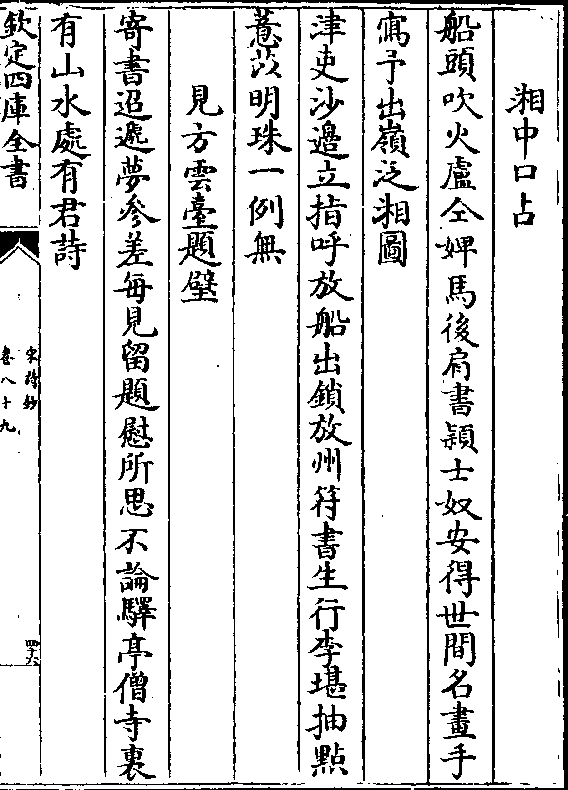 湘中口占
船頭吹火盧仝婢馬後肩書頴士奴安得世間名畫手
寫予出嶺泛湘圖
津吏沙邉立指呼放船出鎖放州符書生行李堪抽㸃
薏苡明珠一例無
見方雲臺題壁
寄書迢遞夢參差每見留題慰所思不論驛亭僧寺裏
有山水處有君詩
欽定四庫全書
宋詩鈔
卷八十九